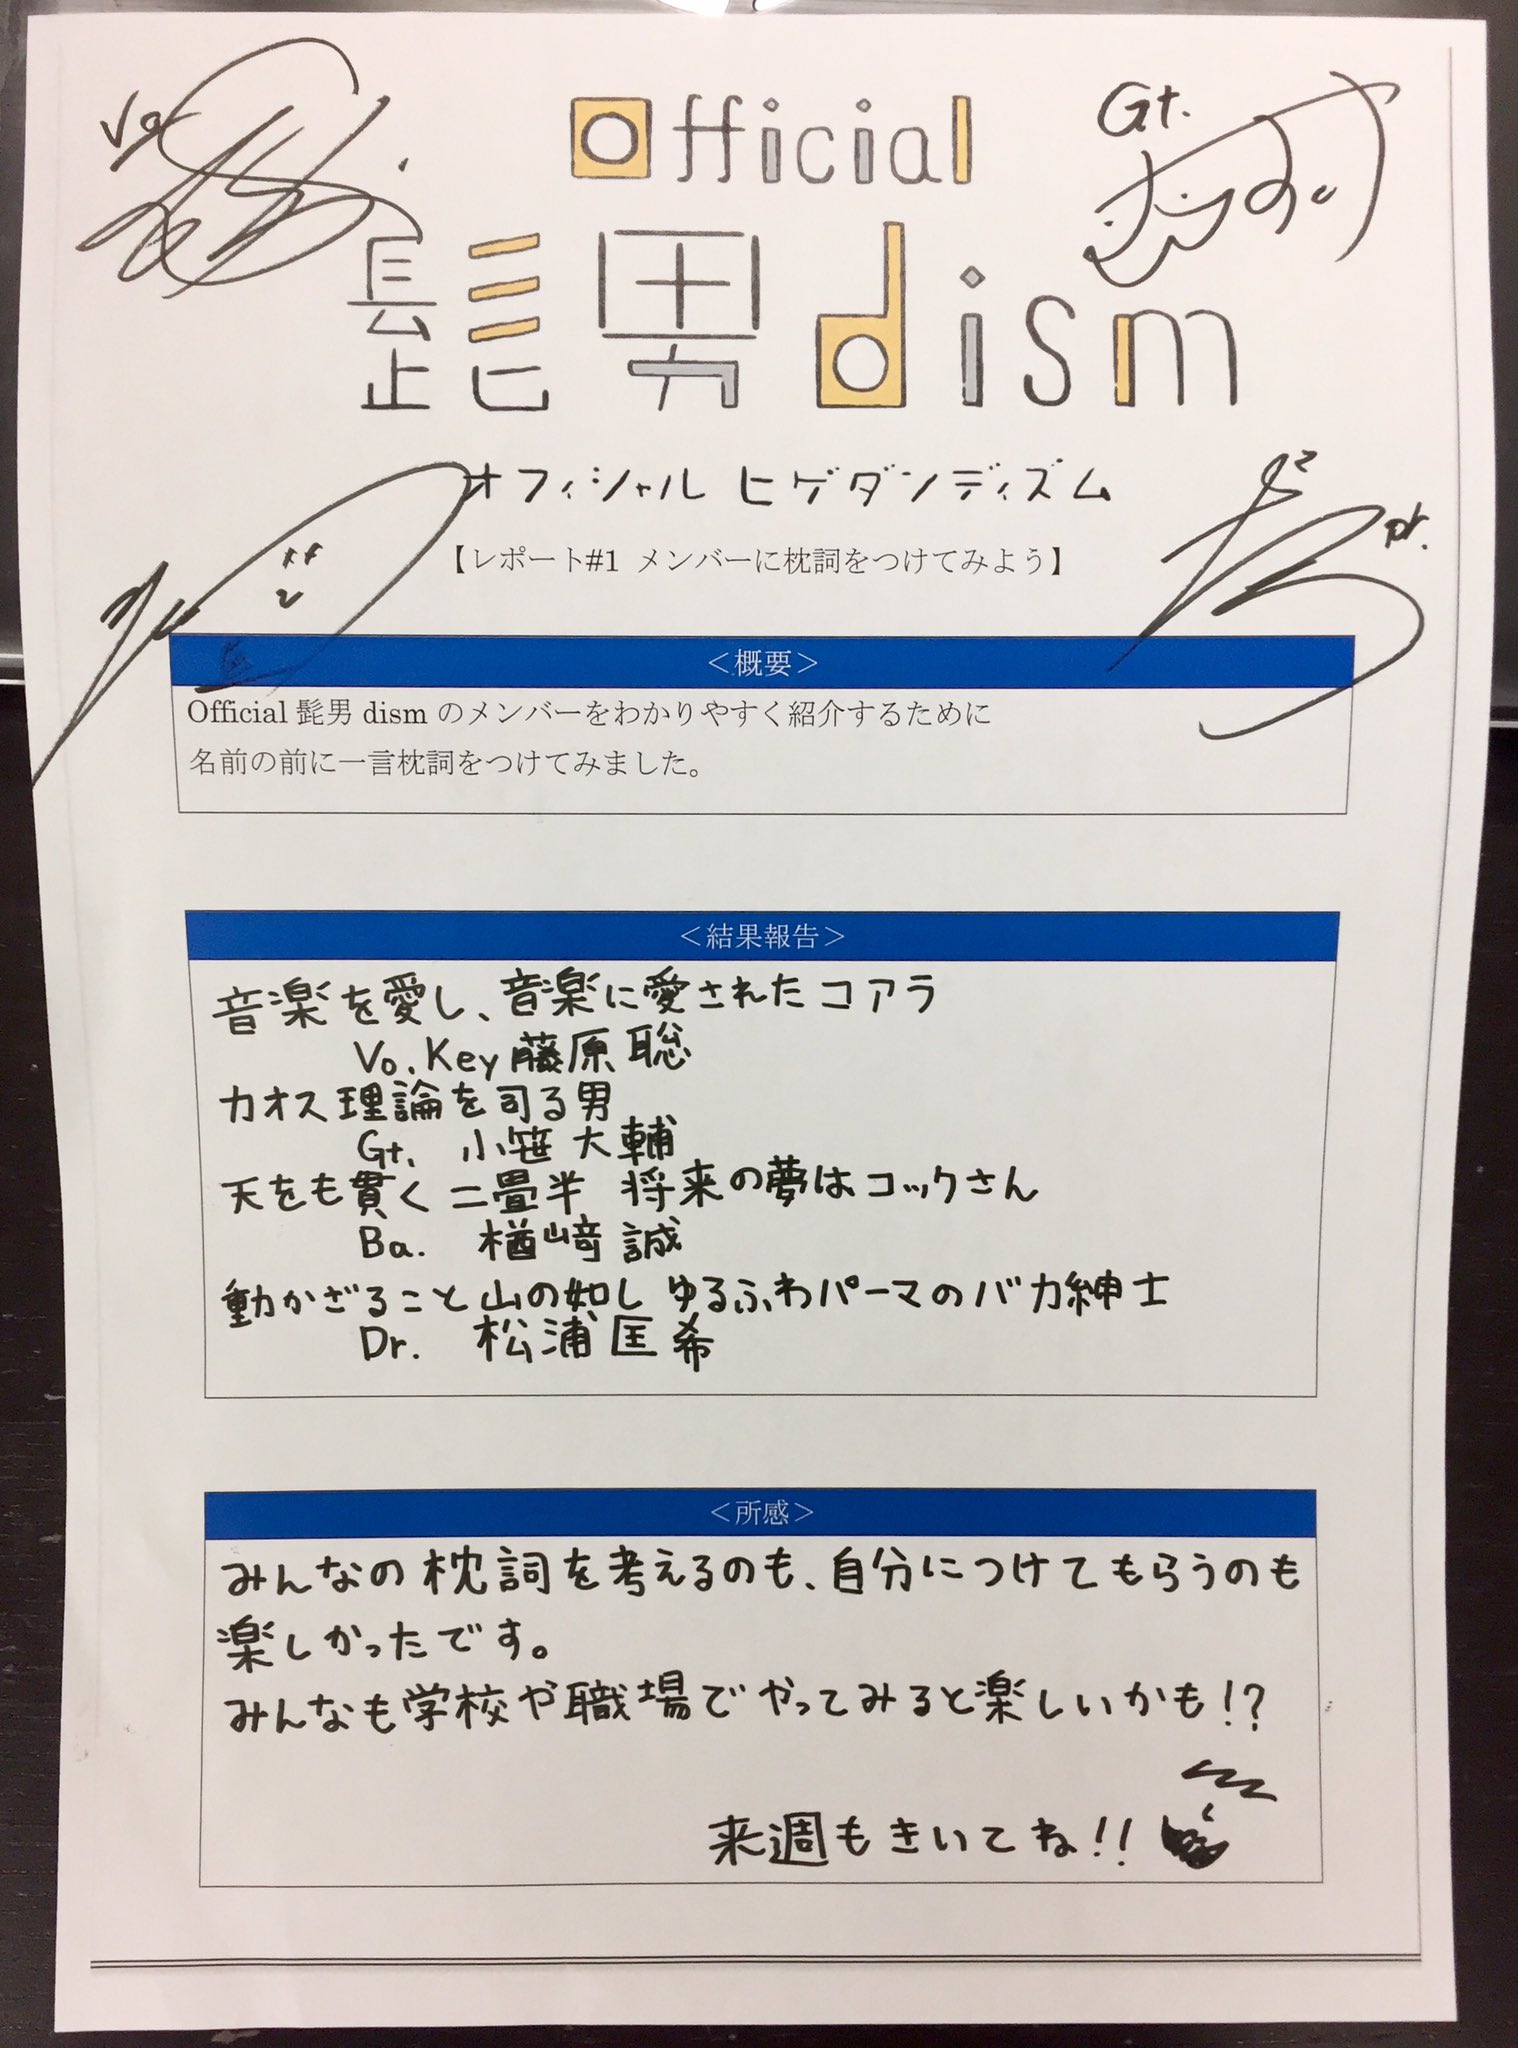 Vo.
Official
Gt.
髭男dism
オフィシャル ヒゲダンディズム
Dr.
【レポート#1 メンバーに枕詞をつけてみよう】
＜概要＞
Official 髭男 dism のメンバーをわかりやすく紹介するために
名前の前に一言枕詞をつけてみました。
＜結果報告＞
音楽を愛し、音楽に愛されたコアラ
Vo. Key 藤原 聡
カオス理論を司る男
Gt. 小笹 大輔
天をも貫く二畳半 将来の夢はコックさん
Ba. 楢﨑 誠
動かざること山の如し ゆるふわパーマのバカ紳士
Dr. 松浦 匡希
＜所感＞
みんなの枕詞を考えるのも、自分につけてもらうのも
楽しかったです。
みんなも学校や職場でやってみると楽しいかも!?
来週もきいてね!!